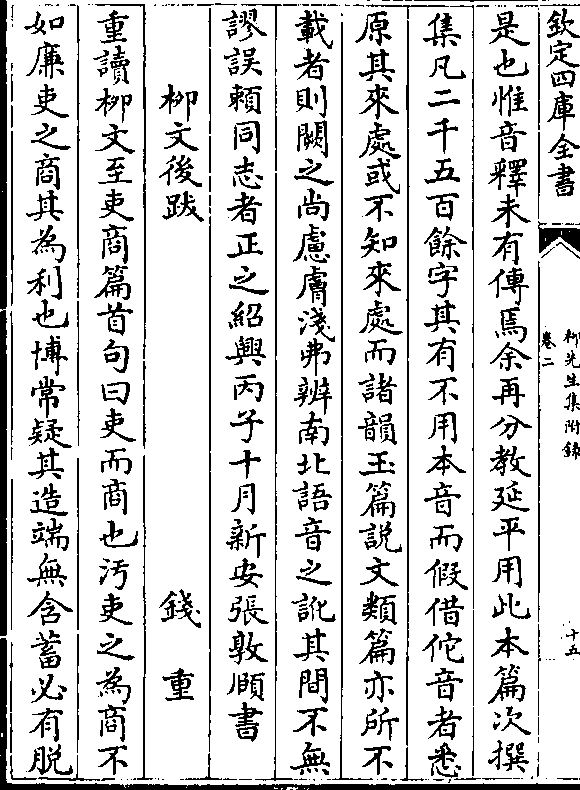 欽定四庫全書
柳先生集附錄
卷二
十五
是也惟音釋未有傳焉余再分教延平用此本篇次撰
集凡二千五百餘字其有不用本音而假借佗音者悉
原其來處或不知來處而諸韻玉篇說文類篇亦所不
載者則闕之尚慮膚淺弗辨南北語音之訛其間不無
謬誤賴同志者正之紹興丙子十月新安張敦頤書
柳文後跋 錢重
重讀柳文至吏商篇首句曰吏而商也汚吏之為商不
如廉吏之商其為利也博常疑其造端無含蓄必有脫